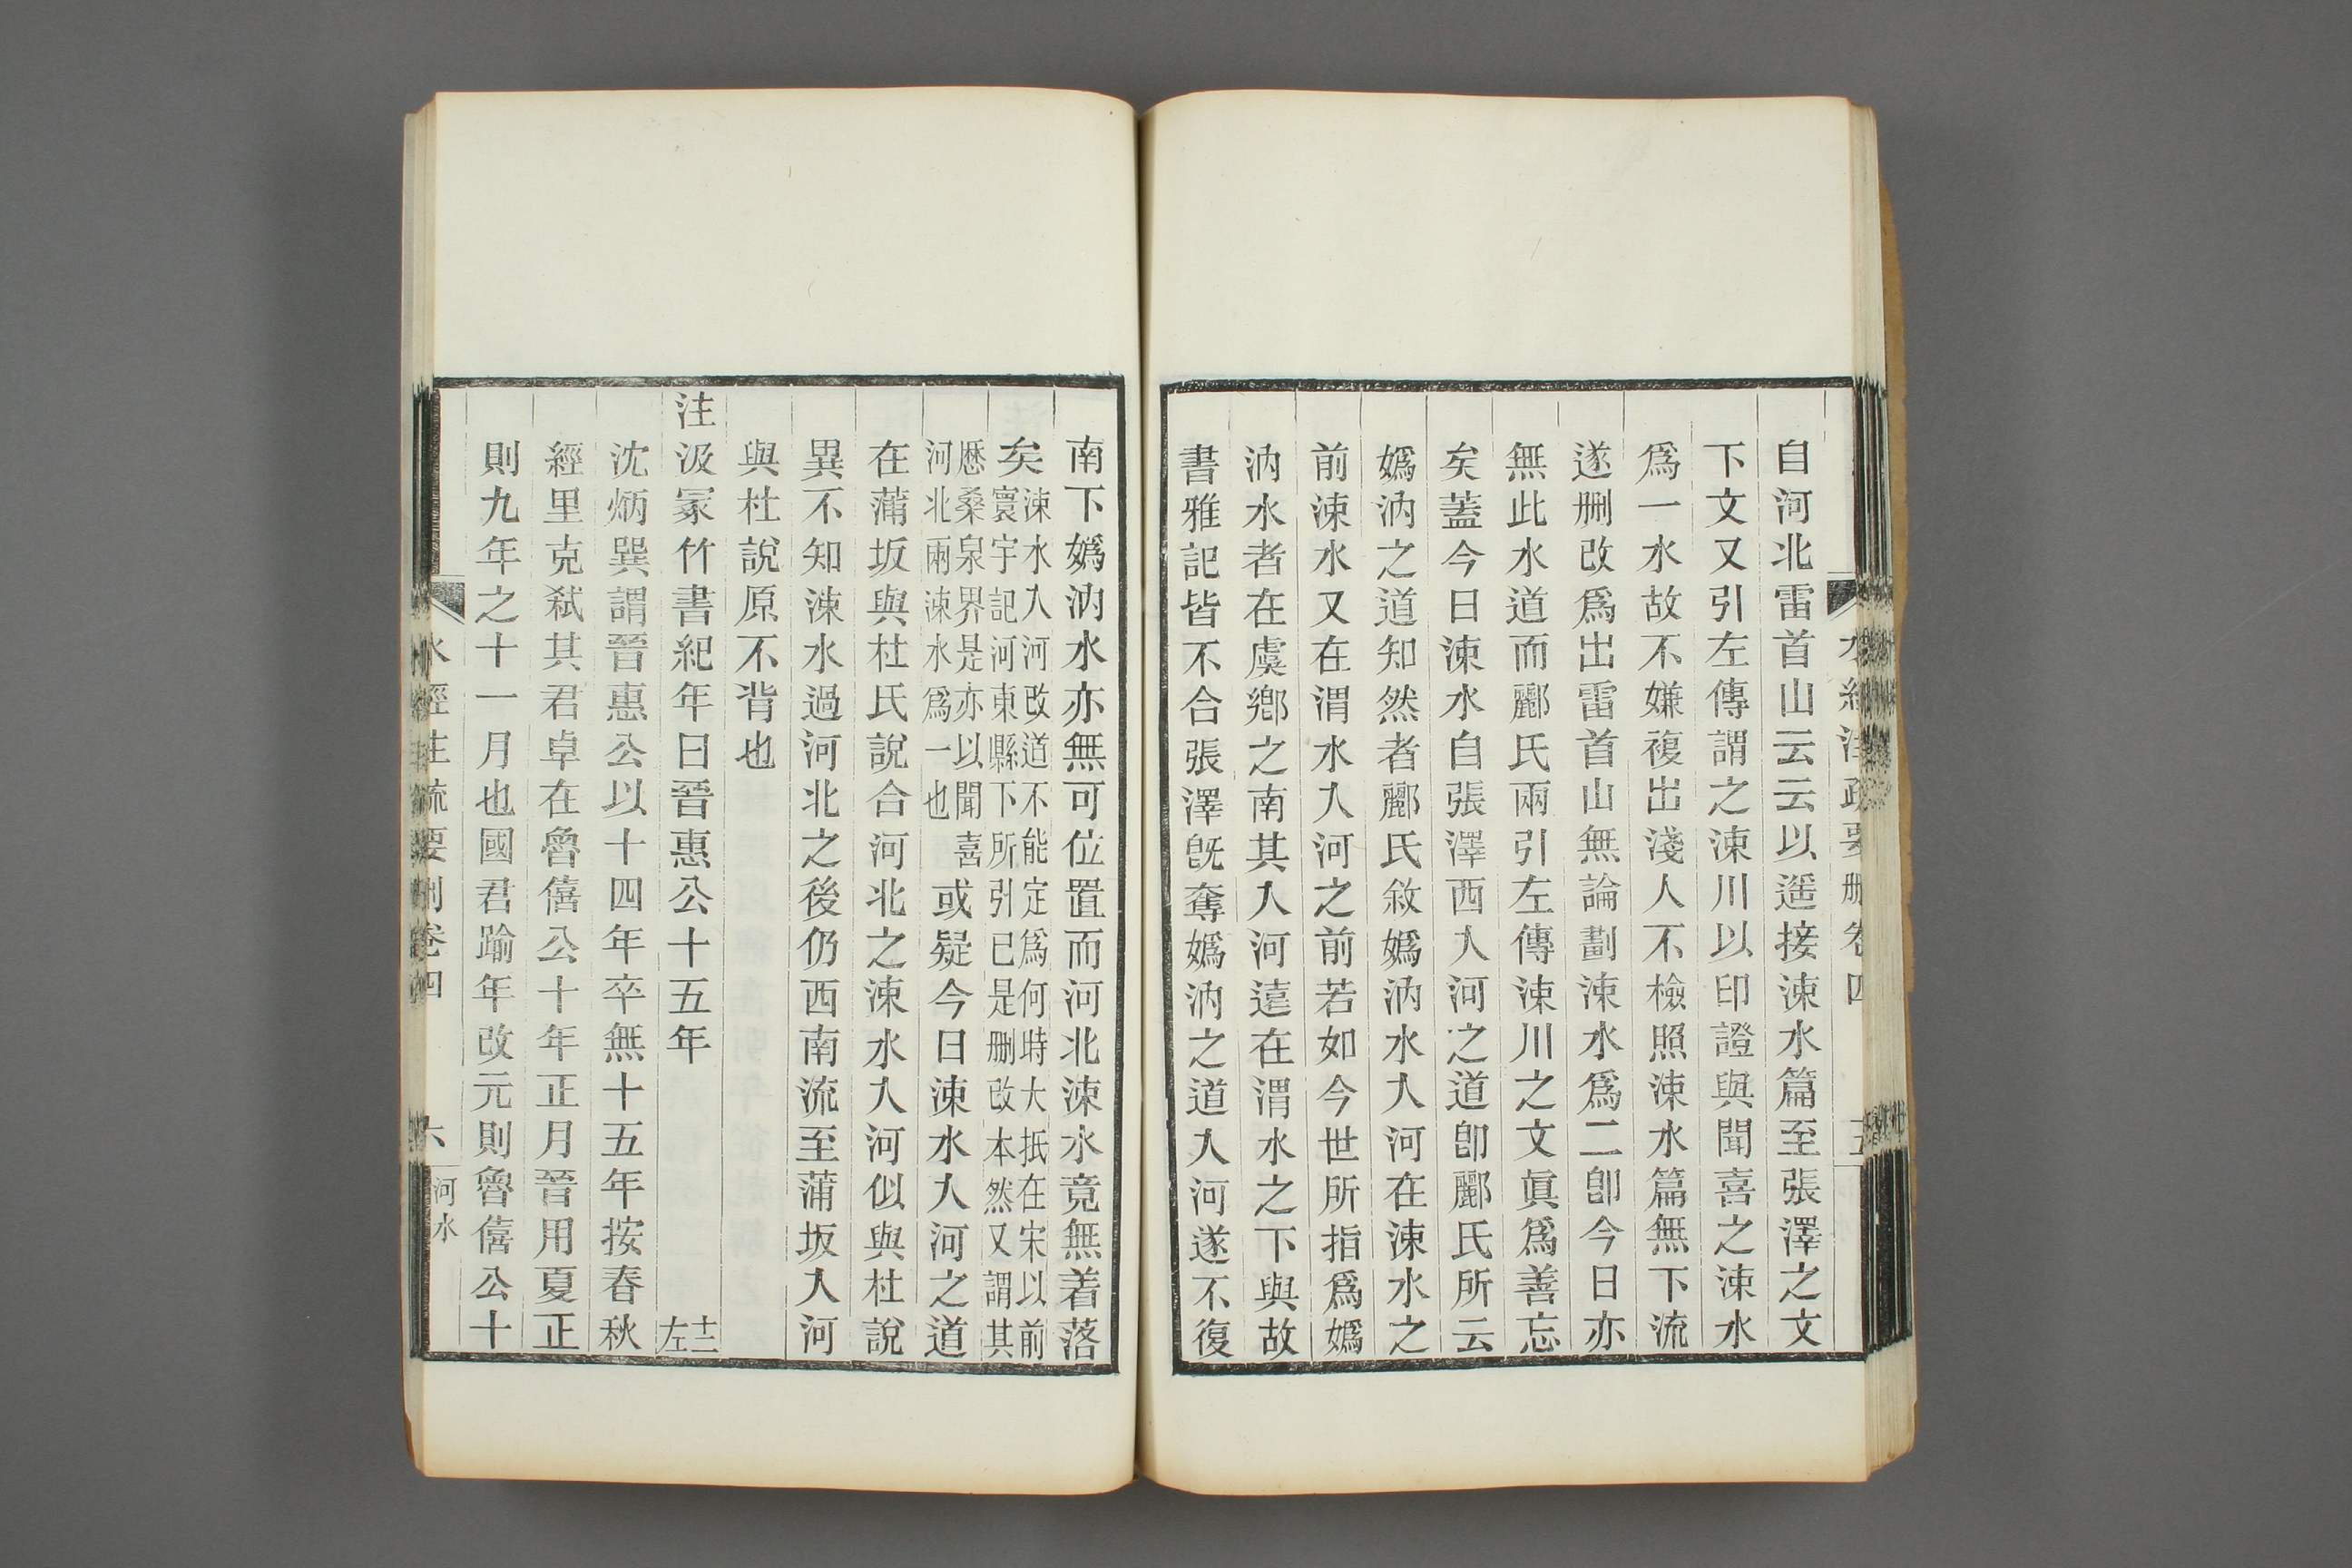 自河北雷首山云云以遥接涑水篇至張澤之文
下文又引左傳謂之涑川以印證與聞喜之涑水
爲一水故不嫌複出淺人不檢照涑水篇無下流
遂删改爲出雷首山無論劃涑水爲二卽今日亦
無此水道而酈氏兩引左傳涑川之文眞爲善忘
矣蓋今日涑水自張澤西入河之道卽酈氏所云
嬀汭之道知然者酈氏敘嬀汭水入河在涑水之
前涑水又在渭水入河之前若如今世所指爲嬀
汭水者在虞鄉之南其入河遠在渭水之下與故
書雅記皆不合張澤旣奪嬀汭之道入河遂不復
南下嬀汭水亦無可位置而河北涑水竟無着落
矣涑水入河改道不能定爲何時大抵在宋以前
寰宇記河東縣下所引已是删改本然又謂其
歷桑泉界是亦以聞喜
河北兩涑水爲一也
或疑今日涑水入河之道
在蒲坂與杜氏說合河北之涑水入河似與杜說
異不知涑水過河北之後仍西南流至蒲坂入河
與杜說原不背也
注汲冢竹書紀年曰晉惠公十五年 十二左
沈炳巽謂晉惠公以十四年卒無十五年按春秋
經里克弑其君卓在魯僖公十年正月晉用夏正
則九年之十一月也國君踰年改元則魯僖公十
水經注疏要删卷四 六 河水